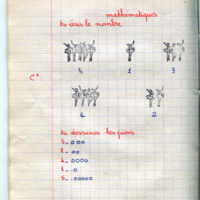 mathématiques
tu écris le nombre
5 1 3
C*
4 2
tu dessines les pions
3_ ooo
2_ oo
4_ oooo
1_ o
5_ ooooo